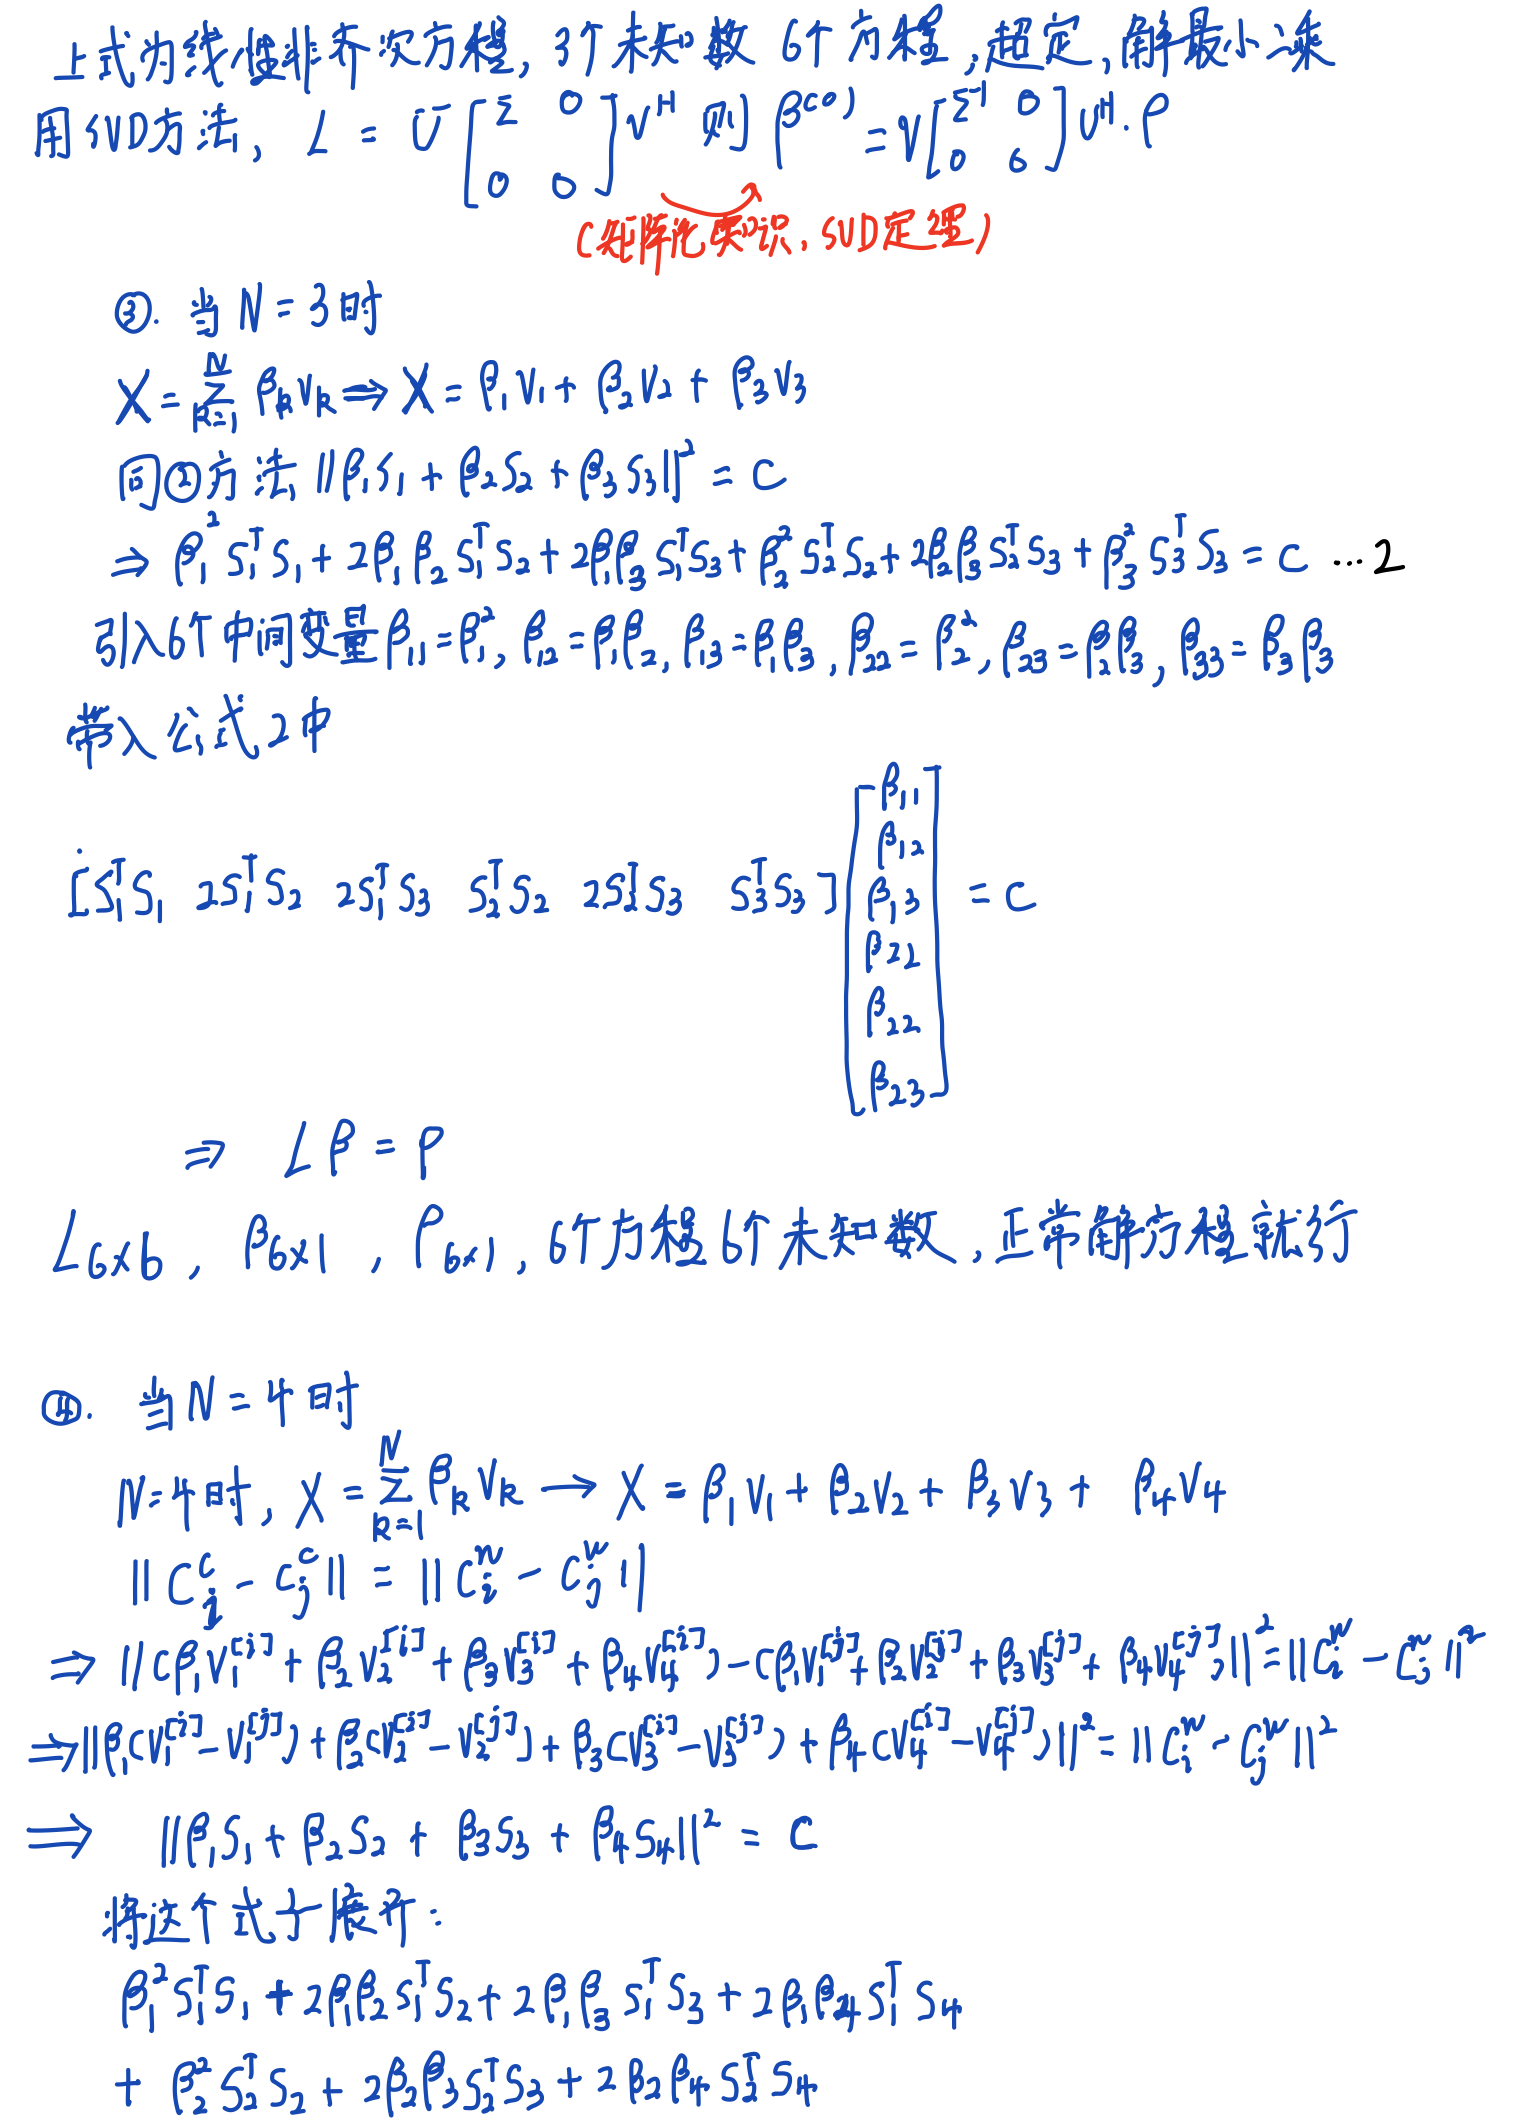 上式为线性非齐次方程, 3个未知数 6个方程, 超定, 解最小二乘
用SVD方法, L = U [Σ 0; 0 0] V^H 则 β^(0) = V [Σ^-1 0; 0 0] U^H · ρ
(矩阵论知识, SVD定理)
③. 当 N = 3 时
X = Σ_{k=1}^{N} β_k V_k ⇒ X = β_1 V_1 + β_2 V_2 + β_3 V_3
同②方法 ||β_1 S_1 + β_2 S_2 + β_3 S_3||^2 = C
⇒ β_1^2 S_1^T S_1 + 2β_1 β_2 S_1^T S_2 + 2β_1 β_3 S_1^T S_3 + β_2^2 S_2^T S_2 + 2β_2 β_3 S_2^T S_3 + β_3^2 S_3^T S_3 = C ...2
引入6个中间变量 β_11 = β_1^2, β_12 = β_1 β_2, β_13 = β_1 β_3, β_22 = β_2^2, β_23 = β_2 β_3, β_33 = β_3 β_3
带入公式2中
[S_1^T S_1 2S_1^T S_2 2S_1^T S_3 S_2^T S_2 2S_2^T S_3 S_3^T S_3] [β_11 β_12 β_13 β_22 β_22 β_23] = C
⇒ Lβ = ρ
L_6×6, β_6×1, ρ_6×1, 6个方程6个未知数, 正常解方程就行
④. 当 N = 4 时
N=4时, X = Σ_{k=1}^{N} β_k V_k → X = β_1 V_1 + β_2 V_2 + β_3 V_3 + β_4 V_4
||C_i^c - C_j^c|| = ||C_i^w - C_j^w||
⇒ ||(β_1 V_1^[i] + β_2 V_2^[i] + β_3 V_3^[i] + β_4 V_4^[i]) - (β_1 V_1^[j] + β_2 V_2^[j] + β_3 V_3^[j] + β_4 V_4^[j])||^2 = ||C_i^w - C_j^w||^2
⇒ ||β_1(V_1^[i] - V_1^[j]) + β_2(V_2^[i] - V_2^[j]) + β_3(V_3^[i] - V_3^[j]) + β_4(V_4^[i] - V_4^[j])||^2 = ||C_i^w - C_j^w||^2
⇒ ||β_1 S_1 + β_2 S_2 + β_3 S_3 + β_4 S_4||^2 = C
将这个式子展开:
β_1^2 S_1^T S_1 + 2β_1 β_2 S_1^T S_2 + 2β_1 β_3 S_1^T S_3 + 2β_1 β_4 S_1^T S_4
+ β_2^2 S_2^T S_2 + 2β_2 β_3 S_2^T S_3 + 2β_2 β_4 S_2^T S_4